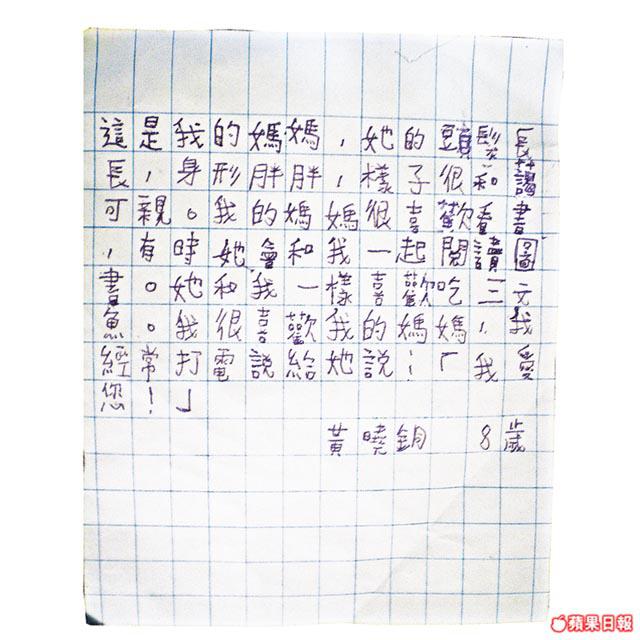 這是我的媽媽，她的頭髮長
長，身形胖胖，樣子很和藹
可親。我的媽媽很喜歡看書
，有時她會和我一起閱讀圖
書。她和我一樣喜歡吃三文
魚。我很喜歡我的媽媽，我
經常打電說給她說：「我愛
您！」
黃曉鈅 8歲
蘋果日報